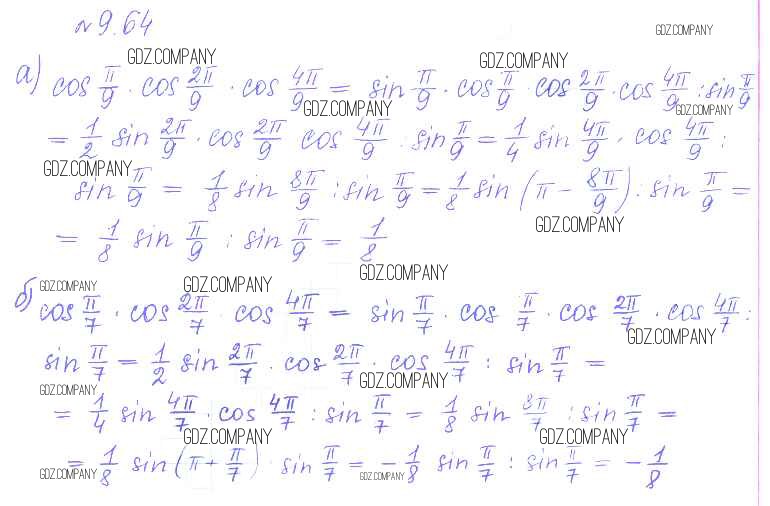 №9.64
GDZ.COMPANY
GDZ.COMPANY GDZ.COMPANY
а) cos π/9 · cos 2π/9 · cos 4π/9 = sin π/9 · cos π/9 · cos 2π/9 · cos 4π/9 : sin π/9
GDZ.COMPANY GDZ.COMPANY
= 1/2 sin 2π/9 · cos 2π/9 cos 4π/9 : sin π/9 = 1/4 sin 4π/9 · cos 4π/9 :
GDZ.COMPANY
sin π/9 = 1/8 sin 8π/9 : sin π/9 = 1/8 sin (π − 8π/9) : sin π/9 =
GDZ.COMPANY
= 1/8 sin π/9 : sin π/9 = 1/8
GDZ.COMPANY
GDZ.COMPANY GDZ.COMPANY
б) cos π/7 · cos 2π/7 · cos 4π/7 = sin π/7 · cos π/7 · cos 2π/7 · cos 4π/7 :
GDZ.COMPANY
sin π/7 = 1/2 sin 2π/7 · cos 2π/7 · cos 4π/7 : sin π/7 =
GDZ.COMPANY GDZ.COMPANY
= 1/4 sin 4π/7 · cos 4π/7 : sin π/7 = 1/8 sin 8π/7 : sin π/7 =
GDZ.COMPANY GDZ.COMPANY
= 1/8 sin (π + π/7) : sin π/7 = − 1/8 sin π/7 : sin π/7 = − 1/8
GDZ.COMPANY GDZ.COMPANY